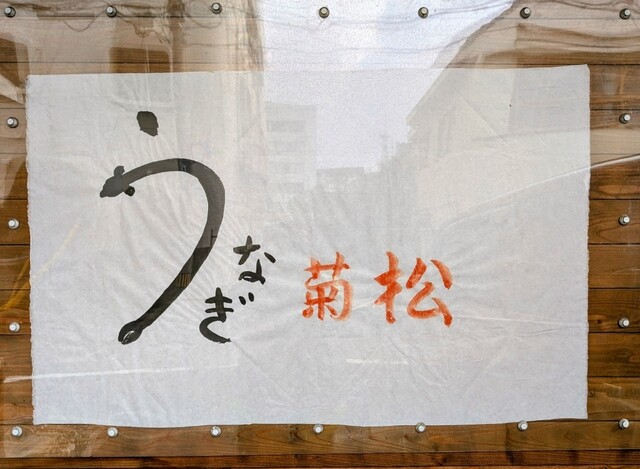 うなぎ 菊松